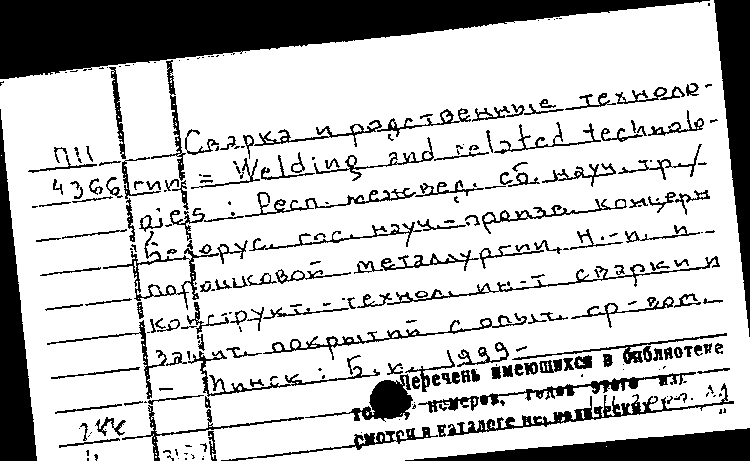 Сварка и родственные техноло-
П11
4366 гии = Welding and related technolo-
gies : Респ. межвед. сб. науч. тр. /
Белорус. гос. науч.-произв. концерн
порошковой металлургии, Н.-и. и
конструкт.-технол. ин-т сварки и
защит. покрытий с опыт. пр-вом.
– Минск : Б. и., 1999–
Перечень имеющихся в библиотеке
номеров, годов этого изд.
смотри в каталоге